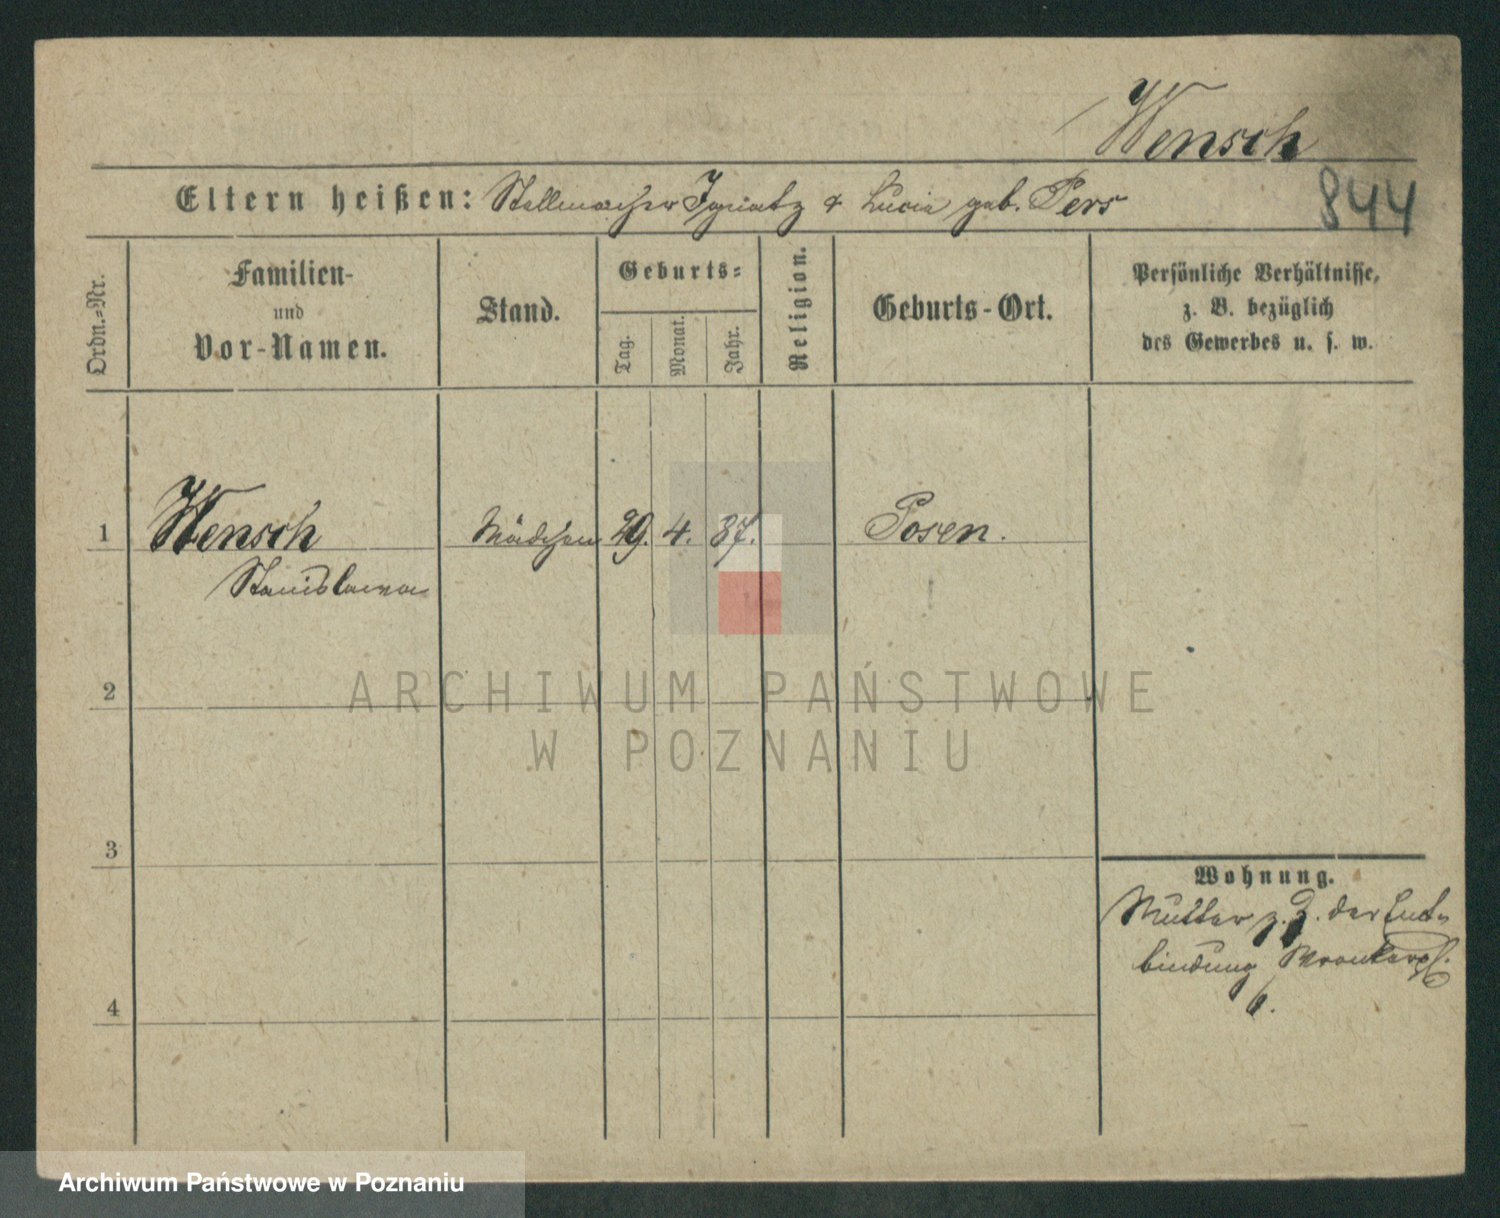 Wensch
844
Eltern heißen: Stellmacher Ignatz & Lucie geb. Pers
Ordn.-Nr.
Familien-
und
Vor-Namen.
Stand.
Geburts-
Tag.
Monat.
Jahr.
Religion.
Geburts-Ort.
Persönliche Verhältnisse,
z. B. bezüglich
des Gewerbes u. s. w.
1 Wensch Mädchen 29. 4. 87. Posen.
Stanislawa
2
ARCHIWUM PAŃSTWOWE
W POZNANIU
3
Wohnung.
Mutter z. Z. der Ent-
bindung Wronkerpl.
6.
4
Archiwum Państwowe w Poznaniu